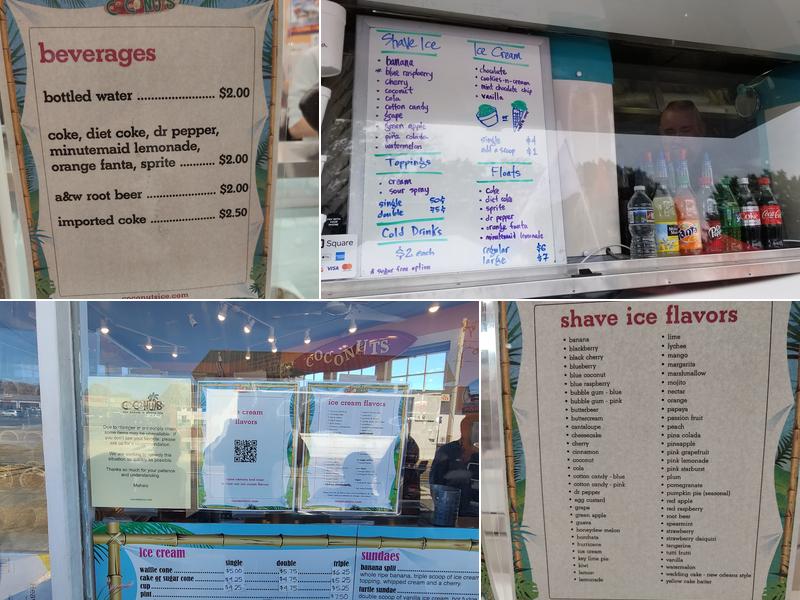 COCONUTS
beverages
bottled water ........................ $2.00
coke, diet coke, dr pepper,
minutemaid lemonade,
orange fanta, sprite .......... $2.00
a&w root beer .................... $2.00
imported coke ................... $2.50
coconutsice.com
Shave Ice
banana
* blue raspberry
cherry
coconut
cola
cotton candy
grape
green apple
piña colada
watermelon
Toppings
cream
sour spray
single 50¢
double 75¢
Cold Drinks
$2 each
* sugar free option
Ice Cream
chocolate
cookies-n-cream
mint chocolate chip
vanilla
or
single $4
add a scoop $1
Floats
coke
diet coke
sprite
dr pepper
orange fanta
minutemaid lemonade
regular $6
large $7
Square
VISA
COCONUTS
some items may be unavailable. If
you don't see your favorite, please
We are working to remedy this
situation as quickly as possible.
Thanks so much for your patience
and understanding.
Mahalo
ice cream
flavors
ice cream flavors
ice cream
single double triple
waffle cone $5.00 $5.75 $6.25
cake or sugar cone $4.25 $4.75 $5.25
cup $4.25 $4.75 $5.25
pint
sundaes
banana split
whole ripe banana, triple scoop of ice cream
topping, whipped cream and a cherry.
turtle sundae
double scoop of vanilla ice cream,
shave ice flavors
banana
blackberry
black cherry
blueberry
blue coconut
blue raspberry
bubble gum - blue
bubble gum - pink
butterbeer
buttercream
cantaloupe
cheesecake
cherry
cinnamon
coconut
cola
cotton candy - blue
cotton candy - pink
dr pepper
egg custard
grape
green apple
guava
honeydew melon
horchata
hurricane
ice cream
key lime pie
kiwi
lemon
lemonade
lime
lychee
mango
margarita
marshmallow
mojito
nectar
orange
papaya
passion fruit
peach
pina colada
pineapple
pink grapefruit
pink lemonade
pink starburst
plum
pomegranate
pumpkin pie (seasonal)
red apple
red raspberry
root beer
spearmint
strawberry
strawberry daiquiri
tangerine
tutti frutti
vanilla
watermelon
wedding cake - new orleans style
yellow cake batter